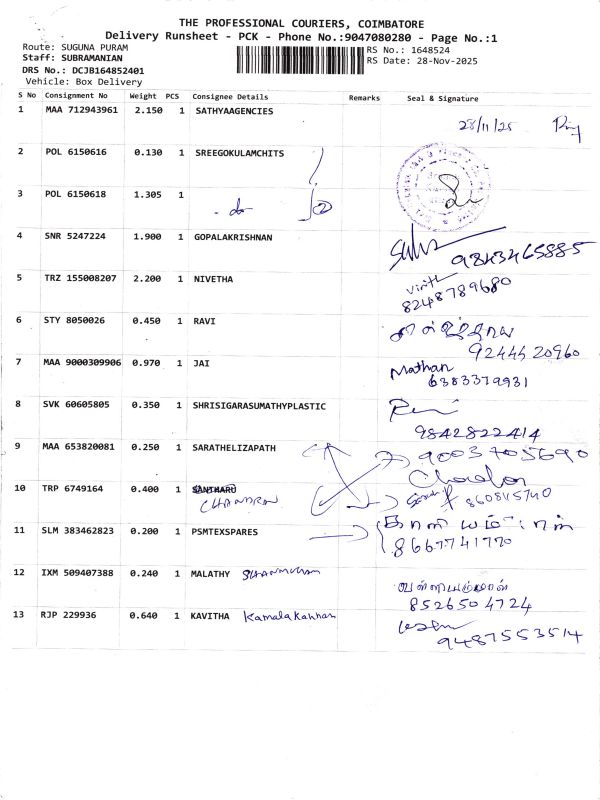 THE PROFESSIONAL COURIERS, COIMBATORE
Delivery Runsheet - PCK - Phone No.:9047080280 - Page No.:1
Route: SUGUNA PURAM
Staff: SUBRAMANIAN
DRS No.: DCJB164852401
Vehicle: Box Delivery
RS No.: 1648524
RS Date: 28-Nov-2025
S No Consignment No Weight PCS Consignee Details Remarks Seal & Signature
1 MAA 712943961 2.150 1 SATHYAAGENCIES 28/11/25
2 POL 6150616 0.130 1 SREEGOKULAMCHITS
3 POL 6150618 1.305 1
4 SNR 5247224 1.900 1 GOPALAKRISHNAN
9843465885
5 TRZ 155008207 2.200 1 NIVETHA
8248789680
6 STY 8050026 0.450 1 RAVI
9244420960
7 MAA 9000309906 0.970 1 JAI Mathan
6383379931
8 SVK 60605805 0.350 1 SHRISIGARASUMATHYPLASTIC
9842822414
9 MAA 653820081 0.250 1 SARATHELIZAPATH 9003705690
10 TRP 6749164 0.400 1 SANTHARU
CHANDRAN 860845740
11 SLM 383462823 0.200 1 PSMTEXSPARES
8667741770
12 IXM 509407388 0.240 1 MALATHY SHANMUGAM
8526504724
13 RJP 229936 0.640 1 KAVITHA Kamalakannan
9487553514